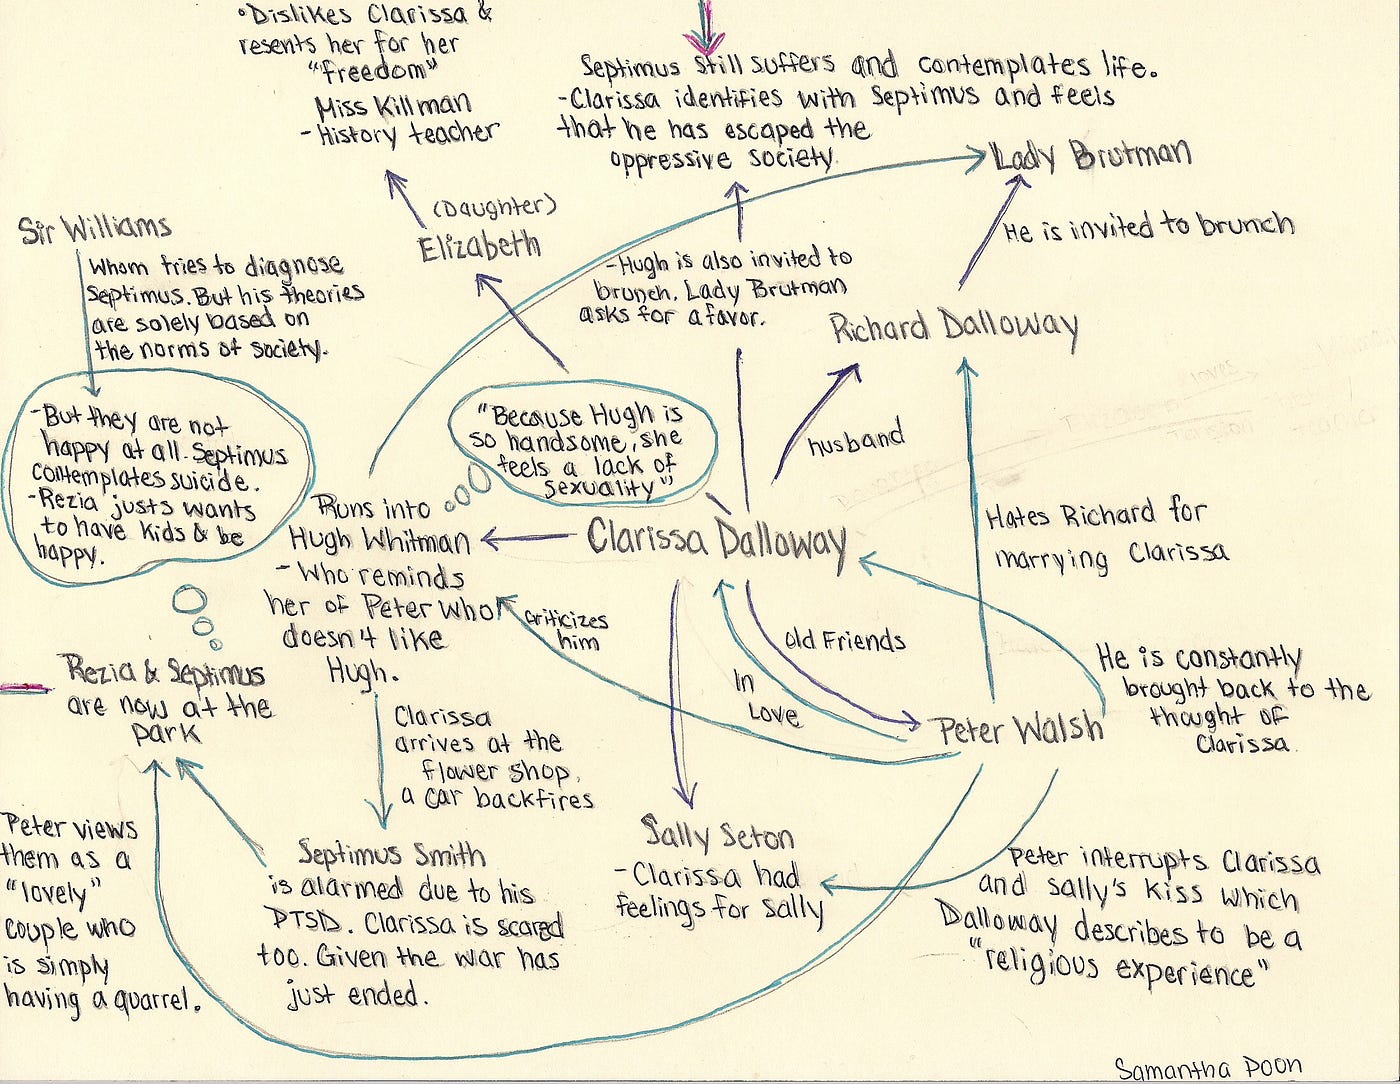 •Dislikes Clarissa &
resents her for her
"freedom"
Miss Killman
- History teacher
Septimus still suffers and contemplates life.
-Clarissa identifies with Septimus and feels
that he has escaped the
oppressive society.
Lady Brutman
He is invited to brunch
Sir Williams
Whom tries to diagnose
Septimus. But his theories
are solely based on
the norms of society.
(Daughter)
Elizabeth
-Hugh is also invited to
brunch. Lady Brutman
asks for a favor.
Richard Dalloway
-But they are not
happy at all. Septimus
contemplates suicide.
-Rezia justs wants
to have kids & be
happy.
"Because Hugh is
so handsome, she
feels a lack of
sexuality"
husband
Runs into
Hugh Whitman
- Who reminds
her of Peter who
doesn't like
Hugh.
Clarissa Dalloway
Hates Richard for
marrying Clarissa
criticizes
him
old Friends
In
Love
He is constantly
brought back to the
thought of
Clarissa.
Rezia & Septimus
are now at the
park
Clarissa
arrives at the
flower shop,
a car backfires
Peter Walsh
Peter views
them as a
"lovely"
couple who
is simply
having a quarrel.
Septimus Smith
is alarmed due to his
PTSD. Clarissa is scared
too. Given the war has
just ended.
Sally Seton
- Clarissa had
feelings for Sally
Peter interrupts Clarissa
and Sally's kiss which
Dalloway describes to be a
"religious experience"
Samantha Poon